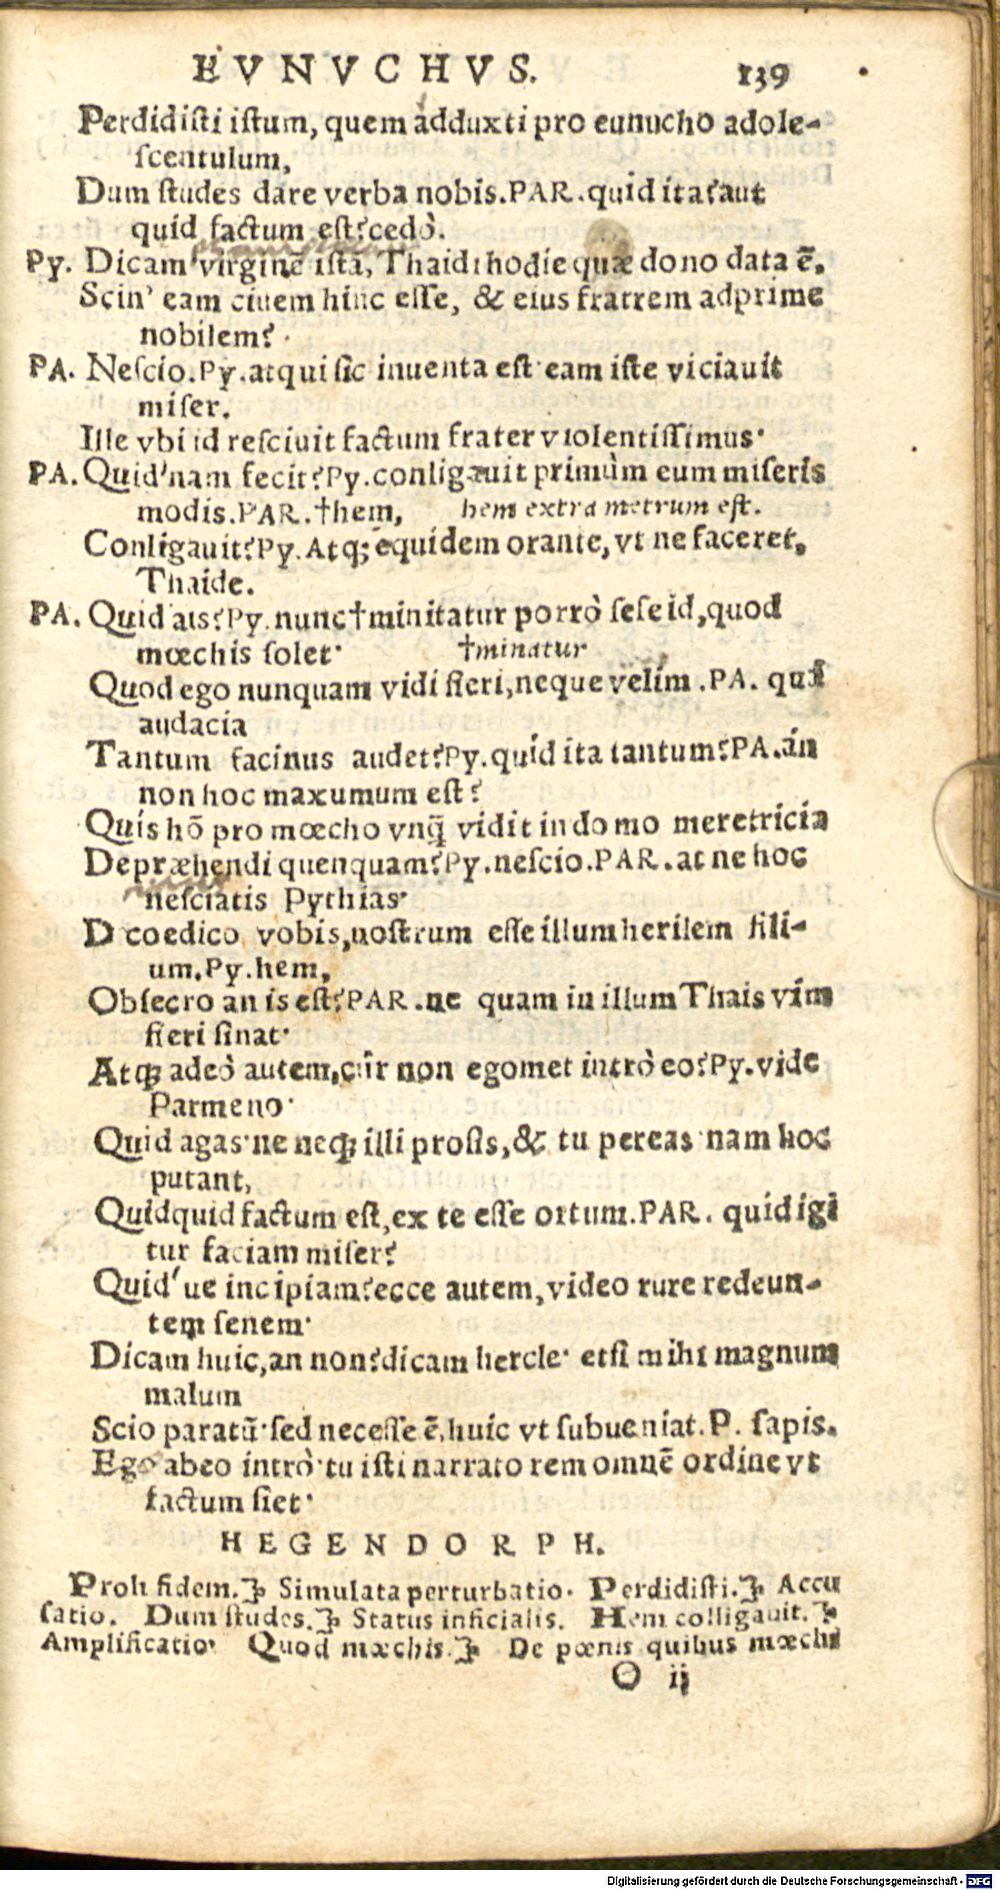 EVNVCHVS. 139
Perdidiſti iſtum, quem adduxti pro eunucho adole-
ſcentulum,
Dum ſtudes dare verba nobis. PAR. quid ita? aut
quid factum eſt? cedò.
Py. Dicam virginē iſtā, Thaidi hodie quæ dono data ē.
Scin' eam ciuem hinc eſſe, & eius fratrem adprime
nobilem?
PA. Neſcio. Py. atqui ſic inuenta eſt eam iſte viciauit
miſer.
Ille vbi id reſciuit factum frater violentiſſimus·
PA. Quid'nam fecit? Py. conligauit primùm eum miſeris
modis. PAR. †hem, hem extra metrum eſt.
Conligauit? Py. Atq; equidem orante, vt ne faceret,
Thaide.
PA. Quid ais? Py. nunc †minitatur porrò ſeſe id, quod
mœchis ſolet· †minatur
Quod ego nunquam vidi fieri, neque velim. PA. qua
audacia
Tantum facinus audet? Py. quid ita tantum? PA. an
non hoc maxumum eſt?
Quis hō pro mœcho vnq̄ vidit in domo meretricia
Depræhendi quenquam? Py. neſcio. PAR. at ne hoc
neſciatis Pythias·
Dico edico vobis, noſtrum eſſe illum herilem fili-
um. Py. hem,
Obſecro an is eſt? PAR. ne quam in illum Thais vim
fieri ſinat·
Atq; adeò autem, cur non egomet intrò eo? Py. vide
Parmeno·
Quid agas· ne neq; illi proſis, & tu pereas· nam hoc
putant,
Quidquid factum eſt, ex te eſſe ortum. PAR. quid igi
tur faciam miſer?
Quid' ue incipiam? ecce autem, video rure redeun-
tem ſenem·
Dicam huic, an non? dicam hercle· etſi mihi magnum
malum
Scio paratū· ſed neceſſe ē, huic vt ſubueniat. P. ſapis.
Ego abeo intrò· tu iſti narrato rem omnē ordine vt
factum ſiet·
HEGENDORPH.
Proh fidem.] Simulata perturbatio· Perdidiſti.] Accu
ſatio. Dum ſtudes.] Status inficialis. Hem colligauit.]
Amplificatio· Quod mœchis.] De pœnis quibus mœchi
O ij
Digitalisierung gefördert durch die Deutsche Forschungsgemeinschaft - DFG